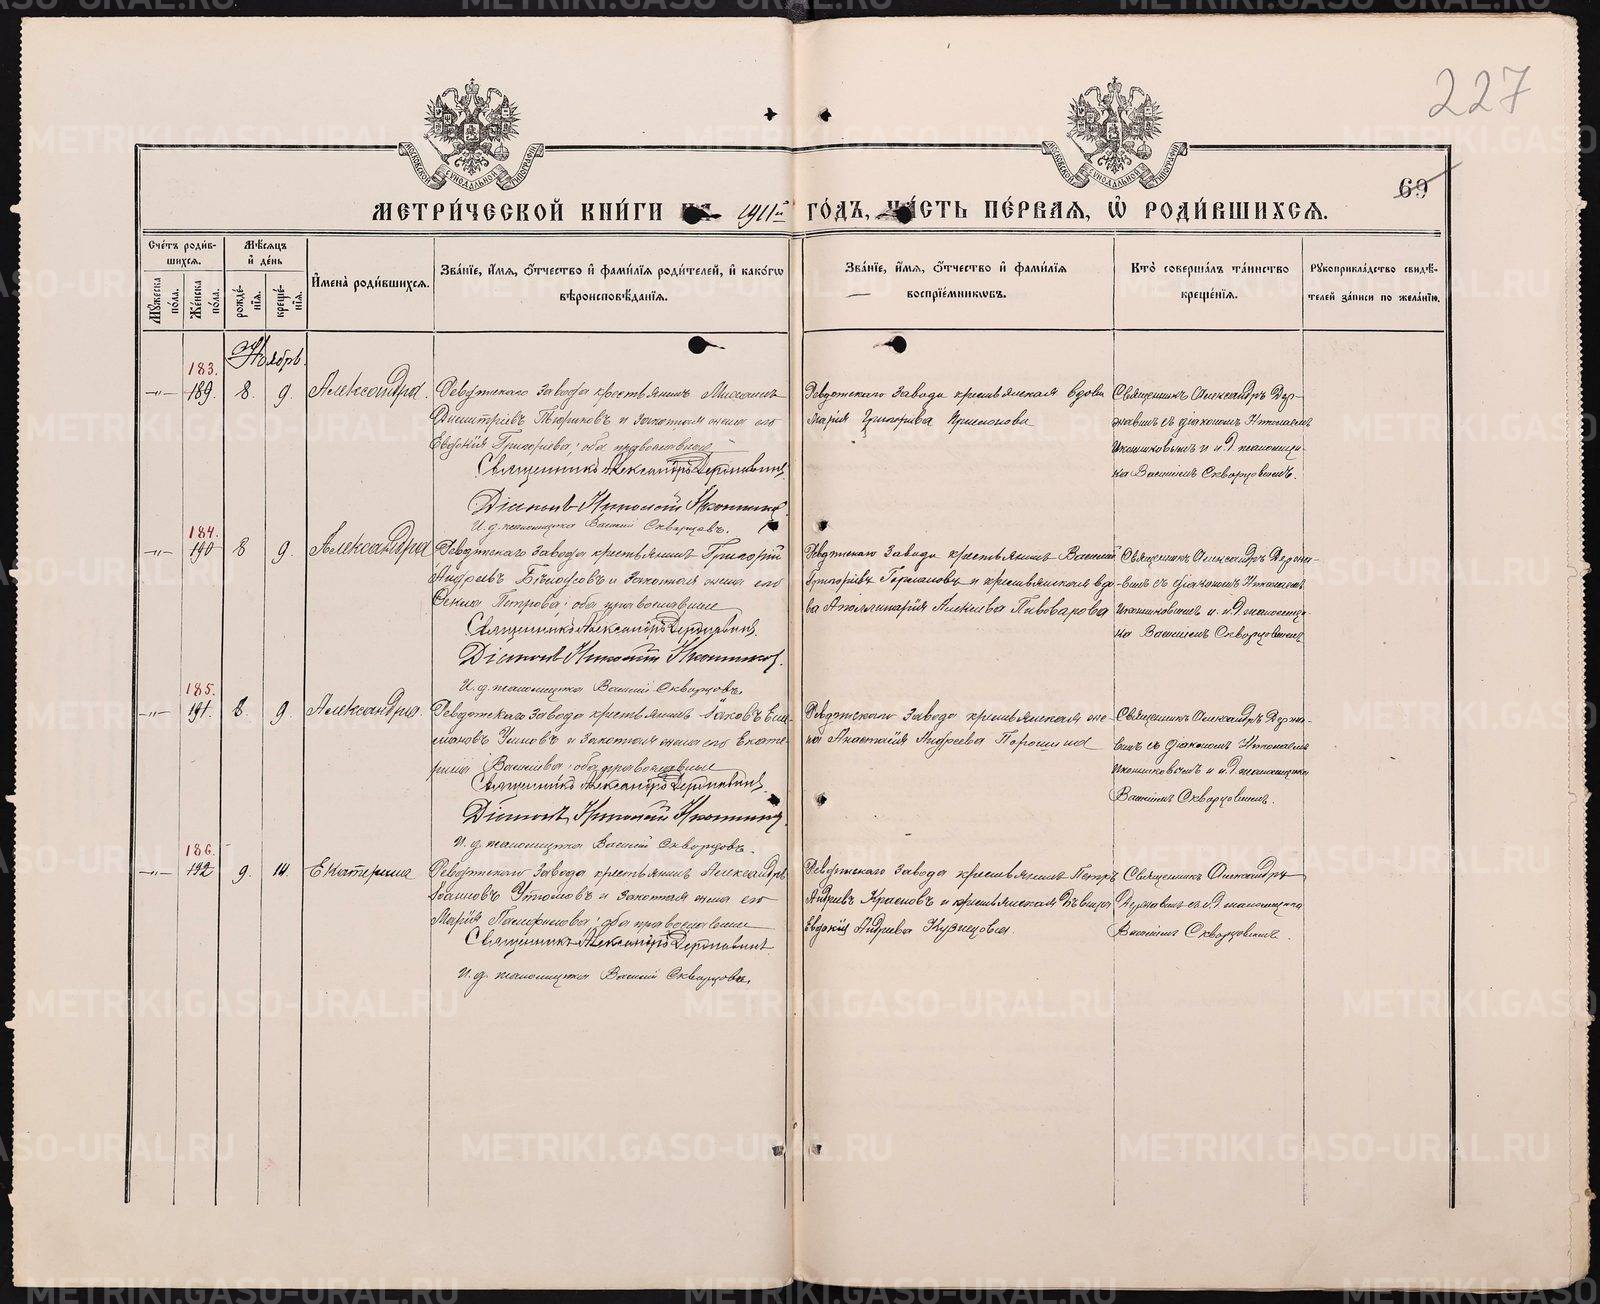 227
69
МЕТРИ́ЧЕСКОЙ КНИ́ГИ НА 1911й ГО́ДЪ, ЧА́СТЬ ПЕ́РВАЯ, Ѿ РОДИ́ВШИХСЯ.
Сче́тъ роди́в-
шихся.
Мѣ́сяцъ
и҆ де́нь
Мꙋ́жеска
по́ла.
Же́нска
по́ла.
рожде́-
нїя.
креще́-
нїя.
И҆мена̀ роди́вшихся.
Зва́нїе, и҆́мя, ѻ҆́тчество и҆ фами́лїя роди́телей, и҆ како́гѡ
вѣроисповѣ́данїя.
Зва́нїе, и҆́мя, ѻ҆́тчество и҆ фами́лїя
воспрїе́мникѡвъ.
Кто̀ соверша́лъ та́инство
креще́нїя.
Рꙋкоприкла́дство свидѣ́-
телей за́писи по жела́нїю.
Ноябрь.
183.
189. 8. 9. Александра.
Ревдтскаго завода крестьянинъ Михаилъ
Димитріевъ и законная жена его
Евдокія Григорьева, оба православные
Священникъ Александръ Державинъ.
Діаконъ Николай Иконниковъ.
И. д. псаломщика Василій Скворцовъ.
Ревдтскаго завода крестьянская вдова
Марія Григорьева
Священникъ Александръ Дер-
жавинъ съ діакономъ Николаемъ
Иконниковымъ и и. д. псаломщи-
ка Василіемъ Скворцовымъ.
184.
190 8 9. Александра
Ревдтскаго завода крестьянинъ Григорій
Андреевъ Бѣлоусовъ и законная жена его
Петрова, оба православные
Священникъ Александръ Державинъ.
Діаконъ Николай Иконниковъ.
И. д. псаломщика Василій Скворцовъ.
Ревдтскаго завода крестьянинъ Василій
Григорьевъ и крестьянская вдо-
ва Аполлинарія Алексіева Пивоварова
Священникъ Александръ Держа-
винъ съ діакономъ Николаемъ
Иконниковымъ и и. д. псаломщи-
ка Василіемъ Скворцовымъ
185.
191. 8. 9. Александра.
Ревдтскаго завода крестьянинъ Іаковъ
и законная жена его Екате-
рина Васильева, оба православные
Священникъ Александръ Державинъ.
Діаконъ Николай Иконниковъ.
И. д. псаломщика Василій Скворцовъ.
Ревдтскаго завода крестьянская же-
на Анастасія Андреева Порошина
Священникъ Александръ Держа-
винъ съ діакономъ Николаемъ
Иконниковымъ и и. д. псаломщика
Василіемъ Скворцовымъ.
186.
192 9. 14. Екатерина
Ревдтскаго завода крестьянинъ Александръ
Іоанновъ и законная жена его
Марія оба православные
Священникъ Александръ Державинъ
И. д. псаломщика Василій Скворцовъ.
Ревдтскаго завода крестьянинъ Петръ
Андреевъ Красновъ и крестьянская дѣвица
Евдокія Андреева Кузнецова.
Священникъ Александръ
Державинъ и и. д. псаломщика
Василіемъ Скворцовымъ.
METRIKI.GASO-URAL.RU